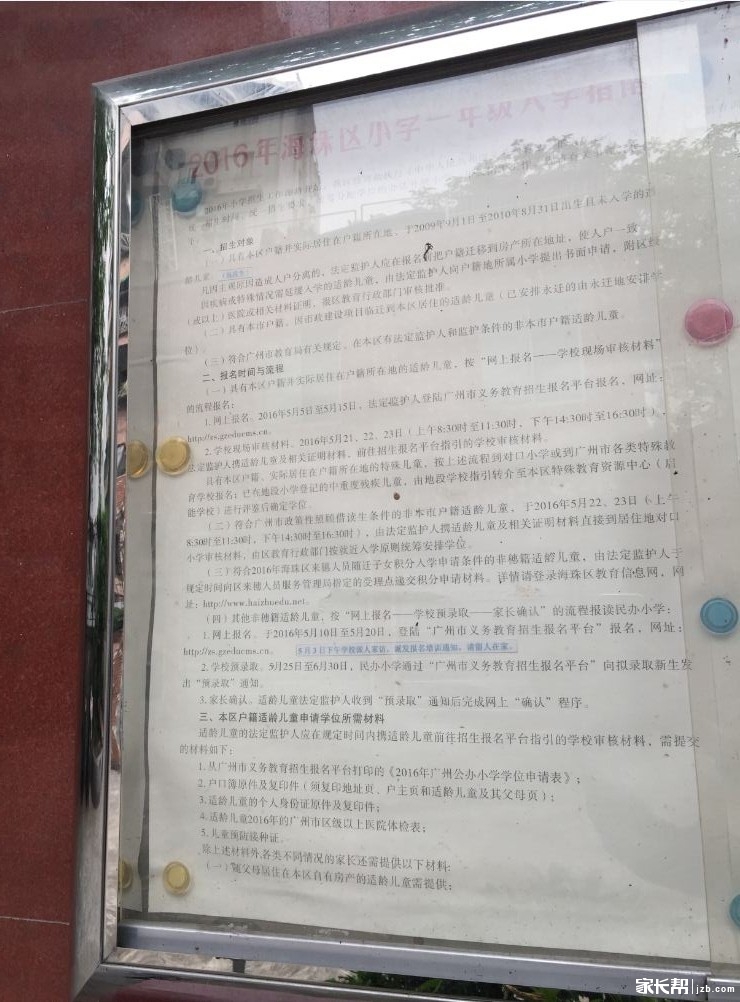 2016年海珠区小学一年级入学指南
2016年小学招生工作即将开始，
一、招生对象
（一）具有本区户籍并实际居住在户籍所在地、于2009年9月1日至2010年8月31日出生且未入学的适
龄儿童。
凡因主观原因造成人户分离的，法定监护人应在报名前把户籍迁移到房产所在地址，使人户一致
因疾病或特殊情况需延缓入学的适龄儿童，由法定监护人向户籍地所属小学提出书面申请，附区级
（或以上）医院或相关材料证明，报区教育行政部门审核批准。
（二）具有本市户籍，因市政建设项目临迁到本区居住的适龄儿童（已安排永迁的由永迁地安排学
位）。
（三）符合广州市教育局有关规定、在本区有法定监护人和监护条件的非本市户籍适龄儿童。
二、报名时间与流程
（一）具有本区户籍并实际居住在户籍所在地的适龄儿童，按“网上报名——学校现场审核材料”
的流程报名：
1.网上报名。2016年5月5日至5月15日，法定监护人登陆广州市义务教育招生报名平台报名，网址：
http://zs.gzeducms.cn。
2.学校现场审核材料。2016年5月21、22、23日（上午8:30时至11:30时，下午14:30时至16:30时），
法定监护人携适龄儿童及相关证明材料，前往招生报名平台指引的学校审核材料。
具有本区户籍、实际居住在户籍所在地的特殊儿童，按上述流程到对口小学或到广州市各类特殊教
育学校报名；已在地段小学登记的中重度残疾儿童，由地段学校指引转介至本区特殊教育资源中心（启
能学校）进行评鉴后确定学位。
（二）符合广州市政策性照顾借读生条件的非本市户籍适龄儿童，于2016年5月22、23日（上午
8:30时至11:30时，下午14:30时至16:30时），由法定监护人携适龄儿童及相关证明材料直接到居住地对口
小学审核材料，由区教育行政部门按就近入学原则统筹安排学位。
（三）符合2016年海珠区来穗人员随迁子女积分入学申请条件的非穗籍适龄儿童，由法定监护人于
规定时间向区来穗人员服务管理局指定的受理点递交积分申请材料。详情请登录海珠区教育信息网，网
址：http://www.haizhuedu.net。
（四）其他非穗籍适龄儿童，按“网上报名——学校预录取——家长确认”的流程报读民办小学：
1.网上报名。于2016年5月10日至5月20日，登陆“广州市义务教育招生报名平台”报名，网址：
http://zs.gzeducms.cn。 5月3日下午学校派人家访，派发报名培训通知，请留人在家。
2.学校预录取。5月25日至6月30日，民办小学通过“广州市义务教育招生报名平台”向拟录取新生发
出“预录取”通知。
3.家长确认。适龄儿童法定监护人收到“预录取”通知后完成网上“确认”程序。
三、本区户籍适龄儿童申请学位所需材料
适龄儿童的法定监护人应在规定时间内携适龄儿童前往招生报名平台指引的学校审核材料，需提交
的材料如下：
1.从广州市义务教育招生报名平台打印的《2016年广州公办小学学位申请表》；
2.户口簿原件及复印件（须复印地址页、户主页和适龄儿童及其父母页）；
3.适龄儿童的个人身份证原件及复印件；
4.适龄儿童2016年的广州市区级以上医院体检表；
5.儿童预防接种证。
除上述材料外,各类不同情况的家长还需提供以下材料：
（一）随父母居住在本区自有房产的适龄儿童需提供：
家长帮 jzb.com